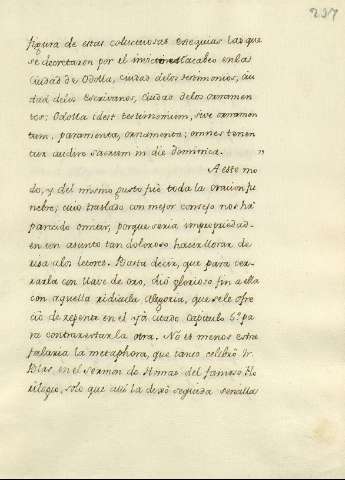 237
figura de estas caluctuosas exequias las que
se decretaron por el Macabeo en las
Ciudad de Odolla, ciudad de los testimonios, ciu
dad de los Escrivanos, Ciudad de los ornamen
tos: Odolla idest testimonium, sive ornamen
tum, paramenta, ornamenta; omnes tenen
tur audire sacrum in die Dominica. "
A este mo
do, y del mismo gusto fuè toda la oracion fu
nebre; cuio traslado con mejor consejo nos há
parecido omitir, porque seria impropiedad
en un asunto tan doloroso hacer llorar de
risa a los letores. Basta decir, que para cer
rarla con llave de oro, diò glorioso fin a ella
con aquella ridicula Alegoria, que se le ofre
ciò de repente en el yà citado Capitulo 6º pa
ra contrarestar la otra. No es menos estra
falaria la metaphora, que tanto celebrò Fr.
Blas, en el sermon de Honras del famoso Ho
, solo que allì la dexò seguida